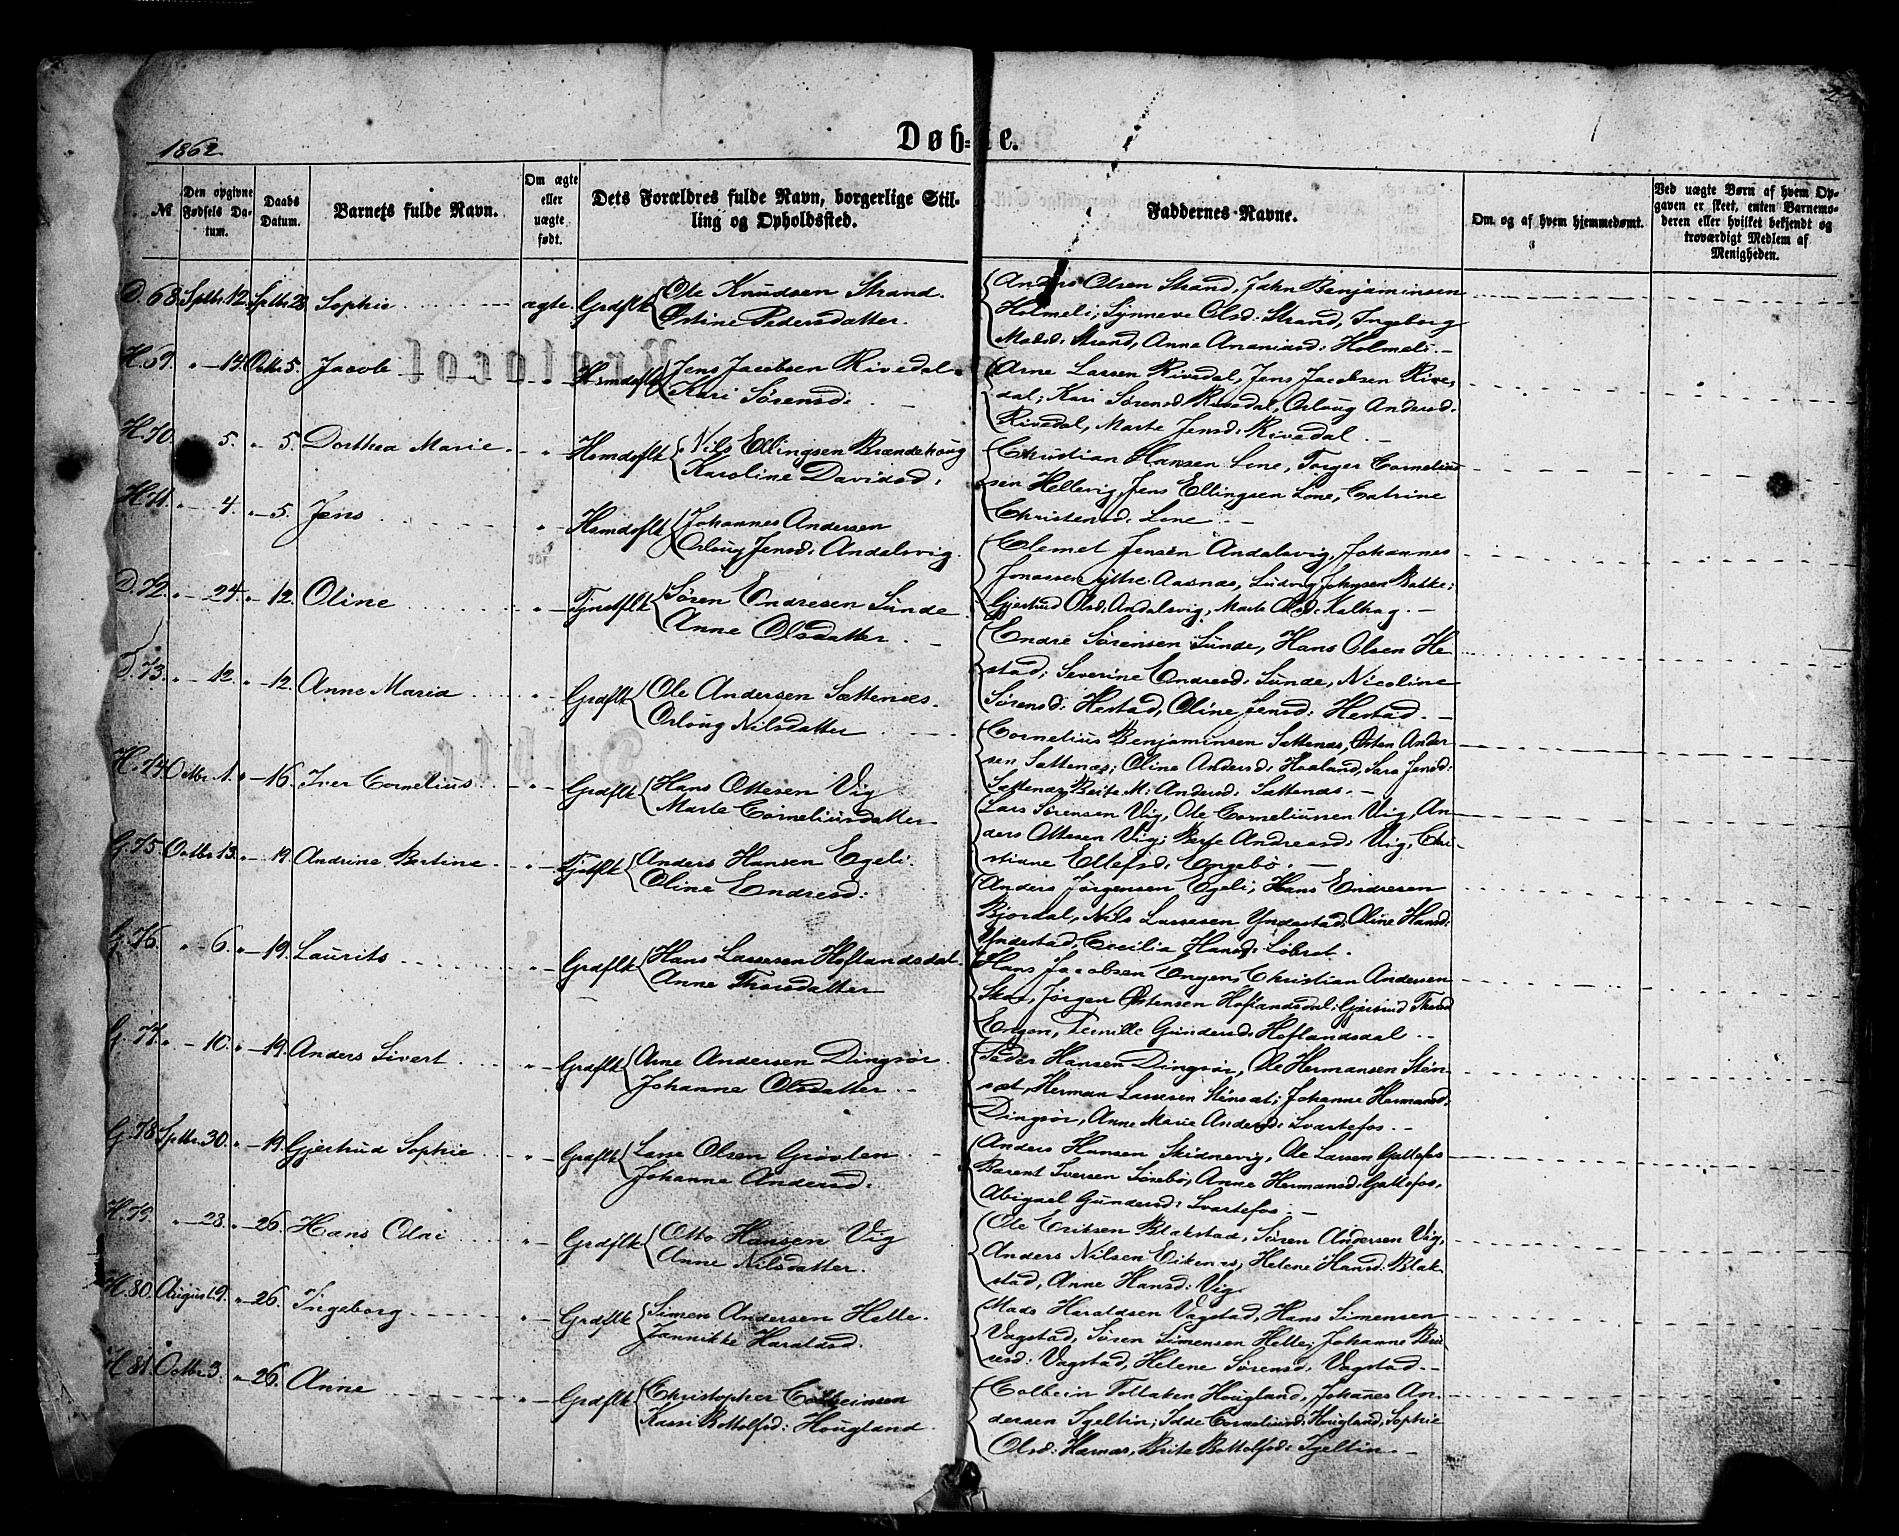 1862
Døb=te.
№
Den opgivne Fødsels Da-tum.
Daabs Datum.
Barnets fulde Navn.
Om ægte eller uægte født.
Dets Forældres fulde Navn, borgerlige Stil-ling og Opholdssted.
Faddernes Navne.
Om og af hvem hjemmedømt.
Ved uægte Børn af hvem Op-gaven er skeet, enten Barnemo-deren eller hvilket bekjendt og troværdigt Medlem af Menigheden.
D. 68. Sptbr. 12. Sptbr. 28. Sophie ægte. Grdflk Ole Knudsen Strand.
Ostine Pedersdatter.
Anders Olsen Strand, John Benjaminsen
Holmeli; Synneve Olsd: Strand, Ingeborg
Madsd: Strand, Anne Ananiasd: Holmeli. –
H. 69. " – 14. Octbr. 5. Jacob " Hsmdsflk Jens Jacobsen Rivedal.
Kari Sørensd:
Arne Larsen Rivedal, Jens Jacobsen Rive-
dal; Kari Sørensd Rivedal, Orloug Andersd:
Rivedal, Marte Jensd: Rivedal. –
H. 70. 5. " 5. Dorthea Marie " Hsmdsflk Nils Ellingsen Brændehoug
Karoline Davidsd:
Christian Hansen Lone, Torger Cornelius-
sen Hellevig, Jens Ellingsen Lone, Catrine
Christensd: Lone –
H. 71. " – 4. " 5. Jens " Hsmdsflk Johannes Andersen
Orloug Jensd: Andalsvig.
Clemet Jensen Andalsvig, Johannes
Jonassen ytre Aasnæs, Ludvig Johnsen Bakke;
Gjertrud Olsd: Andalsvig, Marte Olsd: Kalhag. –
D. 72. " – 24. " 12. Oline " – Tjnstflk Søren Endresen Sunde
Anne Olsdatter. –
Endre Sørensen Sunde, Hans Olsen He-
stad; Severine Endresd: Sunde, Nicoline
Sørensd: Hestad, Oline Jensd: Hestad. –
D. 73. " – 12. " – 12. Anne Maria " Grdflk Ole Andersen Sættenæs.
Orloug Nilsdatter
Cornelius Benjaminsen Sættenæs, Osten Ander-
sen Sættenæs; Oline Andersd: Haaland, Sara Jensd:
Sættenæs, Berte M: Andersd: Sættenæs. –
H. 74. Octbr. 1. " – 16. Iver Cornelius " – Grdflk Hans Ottesen Vig
Marte Corneliusdatter
Lars Sørensen Vig, Ole Corneliussen Vig, An-
ders Ottesen Vig; Andreasd: Vig, Chri-
stiane Ellefsd: Engebø. –
G. 75. Octbr. 13. " – 19. Andrine Bertine " – Anders Hansen Egeli.
Oline Endresd:
Anders Jørgensen Egeli, Hans Endresen
Bjordal, Nils Lassesen Yndestad; Oline Hansd:
Yndestad, Cecilia Hansd:
G. 76. " – 6. " – 19. Laurits " – Grdflk Hans Lassesen Hoflandsdal.
Anne Thorsdatter
Hans Jacobsen Engen, Christian Andersen
Jørgen Ostensen Hoflandsdal; Gjertrud
Engen, Gundersd: Hoflandsdal –
G. 77. " – 10. " – 19. Anders Sivert " – Grdflk Arne Andersen Dingsør.
Johanne Olsdatter –
Peder Hansen Dingsør, Ole Hermansen Stein-
sæt, Herman Lassesen Steinsæt; Johanne Hermansd:
Dingsør, Anne Marie Andersd: Svartefos. –
G. 78. Sptbr. 30. " – 19. Gjertrud Sophie " – Grdflk Lasse Olsen Grøvlen
Johanne Andersd:
Anders Hansen Skidnevig, Ole Larsen Gottefos
Barent Iversen Sørebø; Anne Hermansd: Gottefos,
Abigael Gundersd: Svartefos. –
H. 79. " – 23. " – 26. Hans Olai " – Grdflk Otto Hansen Vig
Anne Nilsdatter.
Ole Eriksen Blakstad, Søren Andersen Vig,
Anders Nilsen Eikenæs; Helene Hansd: Blak-
stad, Anne Hansd: Vig.
H. 80. August 9. " – 26. Ingeborg " – Grdflk Simen Andersen Helle.
Jannikke Haraldsd.
Mads Haraldsen Vagstad, Hans Simensen
Vagstad, Søren Simensen Helle; Johanne
Vagstad, Helene Sørensd: Vagstad. –
H. 81. Octbr. 3. " – 26. Anne " – Grdflk Christopher Colbeinsen
Kari Bottolfsd: Hougland.
Colbein Tollaksen Hougland, Johanes An-
dersen Igeltin; Idde Corneliusd: Hougland, Sophie
Olsd: Hærnæs, Brite Bottolfsd: Igeltin. –